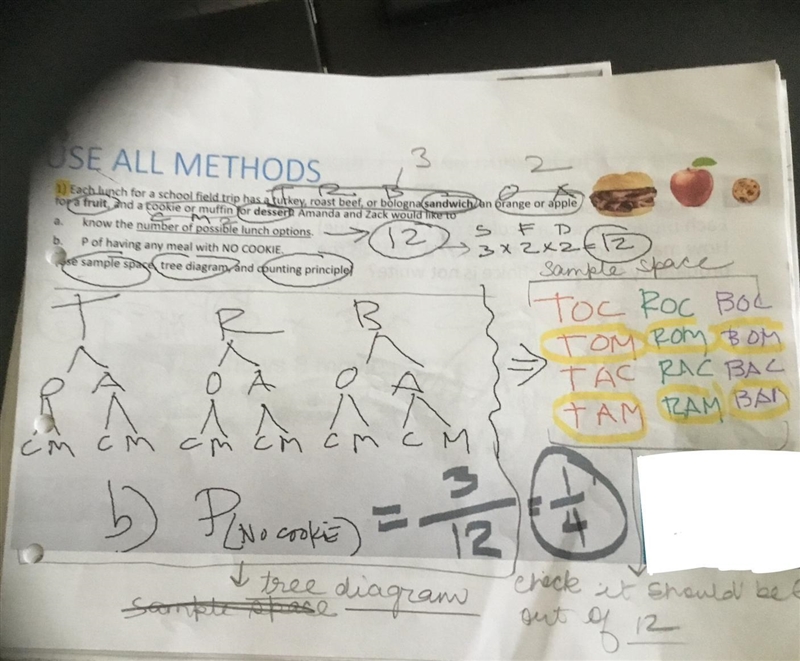 USE ALL METHODS
3
2
T R B O A
1) Each lunch for a school field trip has a turkey, roast beef, or bologna sandwich, an orange or apple
for a fruit, and a cookie or muffin for dessert. Amanda and Zack would like to
C M 2
a. know the number of possible lunch options. → 12 → 3 × 2 × 2 = 12
S F D
b. P of having any meal with NO COOKIE.
Use sample space, tree diagram, and counting principle!
Sample Space
T R B
O A O A O A
CM CM CM CM CM C M
⇒
TOC ROC BOC
TOM ROM BOM
TAC RAC BAC
TAM RAM BAM
b) P(No cookie) = 3/12 = 1/4
↓ tree diagram
sample space
check it should be
out of 12